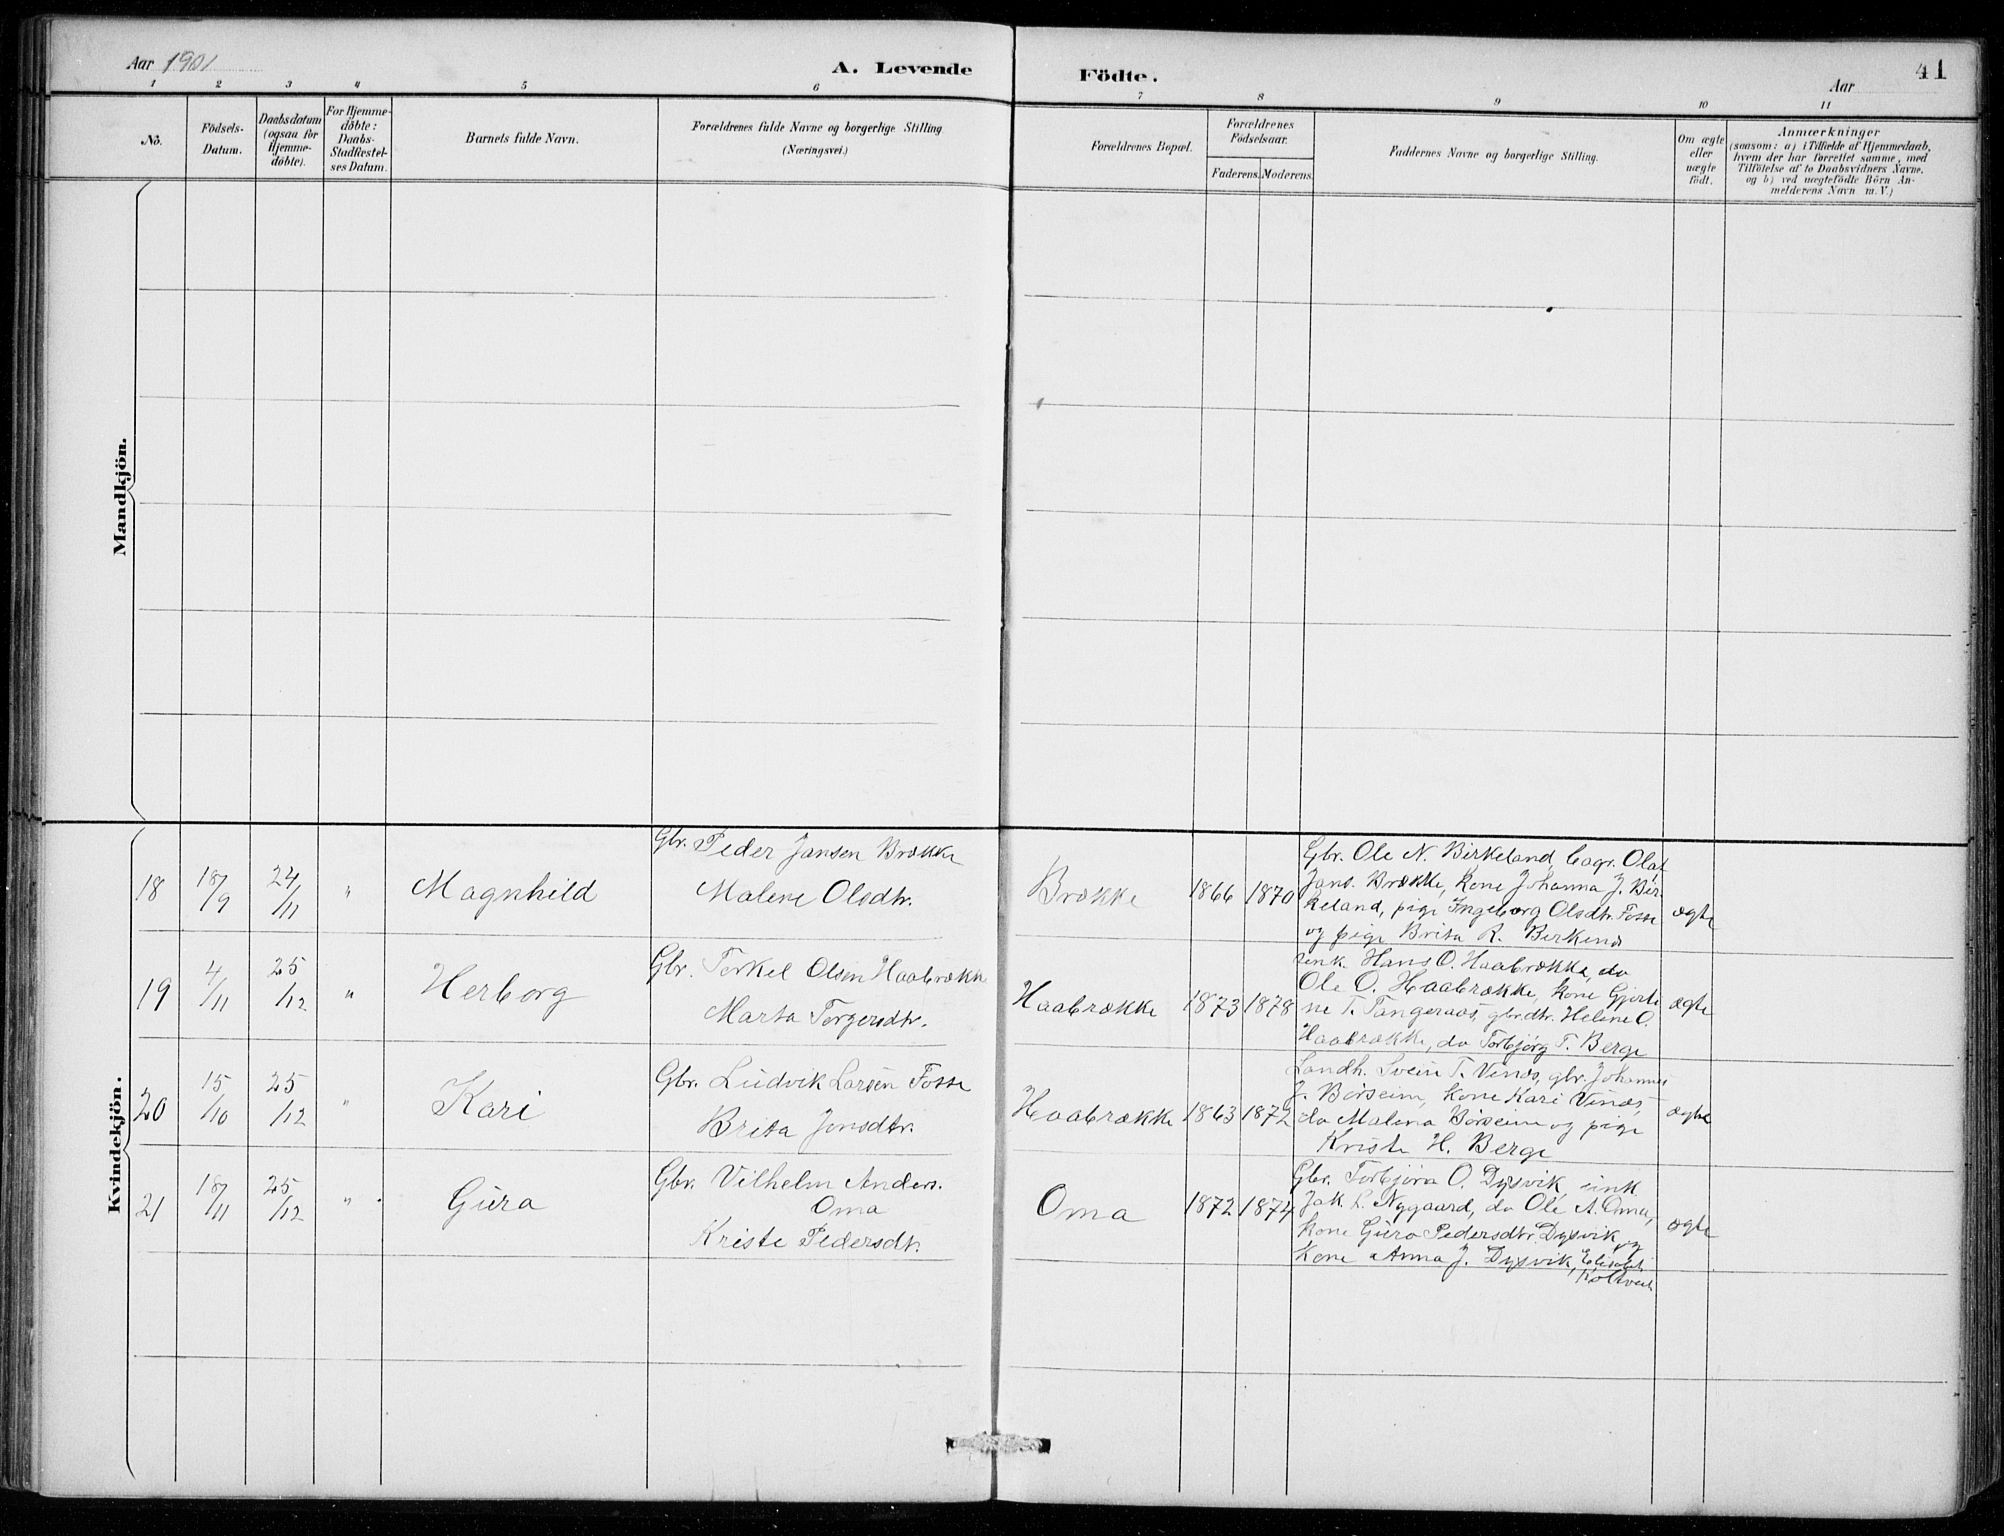 Aar 1901
A. Levende
Födte.
Aar
41
1 2 3 4 5 6 7 8 9 10 11
No.
Födsels-
Datum.
Daabsdatum
(ogsaa for
Hjemme-
döbte).
For Hjemme-
döbte:
Daabs-
Stadfæstel-
ses Datum.
Barnets fulde Navn.
Forældrenes fulde Navne og borgerlige Stilling
(Næringsvei.)
Forældrenes Bopæl.
Forældrenes
Födselsaar.
Faderens. Moderens.
Faddernes Navne og borgerlige Stilling.
Om ægte
eller
uægte
födt.
Anmærkninger
(saasom: a) i Tilfælde af Hjemmedaab,
hvem der har forrettet samme, med
Tilföielse af to Daabsvidners Navne.
og b) ved uægtefödte Börn An-
melderens Navn m. V.)
Mandkjön.
Kvindekjön.
18
18/9
24/11
"
Magnhild
Gbr. Peder Jansen Brække
Malene Olsdtr.
Brække
1866
1870
Gbr. Ole N. Birkeland Olaf
Jans. Brække, Kone Johanna J. Bir
keland, pige Ingeborg Olsdtr. Fosse
og pige Brita R. Birkend
ægte
19
4/11
25/12
"
Herborg
Gbr. Torkel Olsen Haabrække
Marta Torgersdtr.
Haabrække
1873
1878
unk. Hans O. Haabrække, do
Ole O. Haabrække, kone Gjerti
ne T. Tangeraas, gbrdtr. Helene O.
Haabrække, do Torbjørg T. Berge
ægte
20
15/10
25/12
"
Kari
Gbr. Ludvik Larsen Fosse
Brita Jonsdtr.
Haabrække
1863
1872
Landh. Svein T. Vinæs, gbr. Johannes
J. Børseim, kone Kari Vinæs,
do Malena Børseim og pige
Kriste H. Berge
ægte
21
18/11
25/12
"
Gura
Gbr. Vilhelm Anders.
Oma
Kriste Pedersdtr.
Oma
1872
1874
Gbr. Torbjørn O. Dysvik unk
Jak. L. Nygaard, do Ole A. Oma,
kone Guro Pedersdtr. Dysvik og
Kone Anna J. Dysvik, Elisabet
ægte